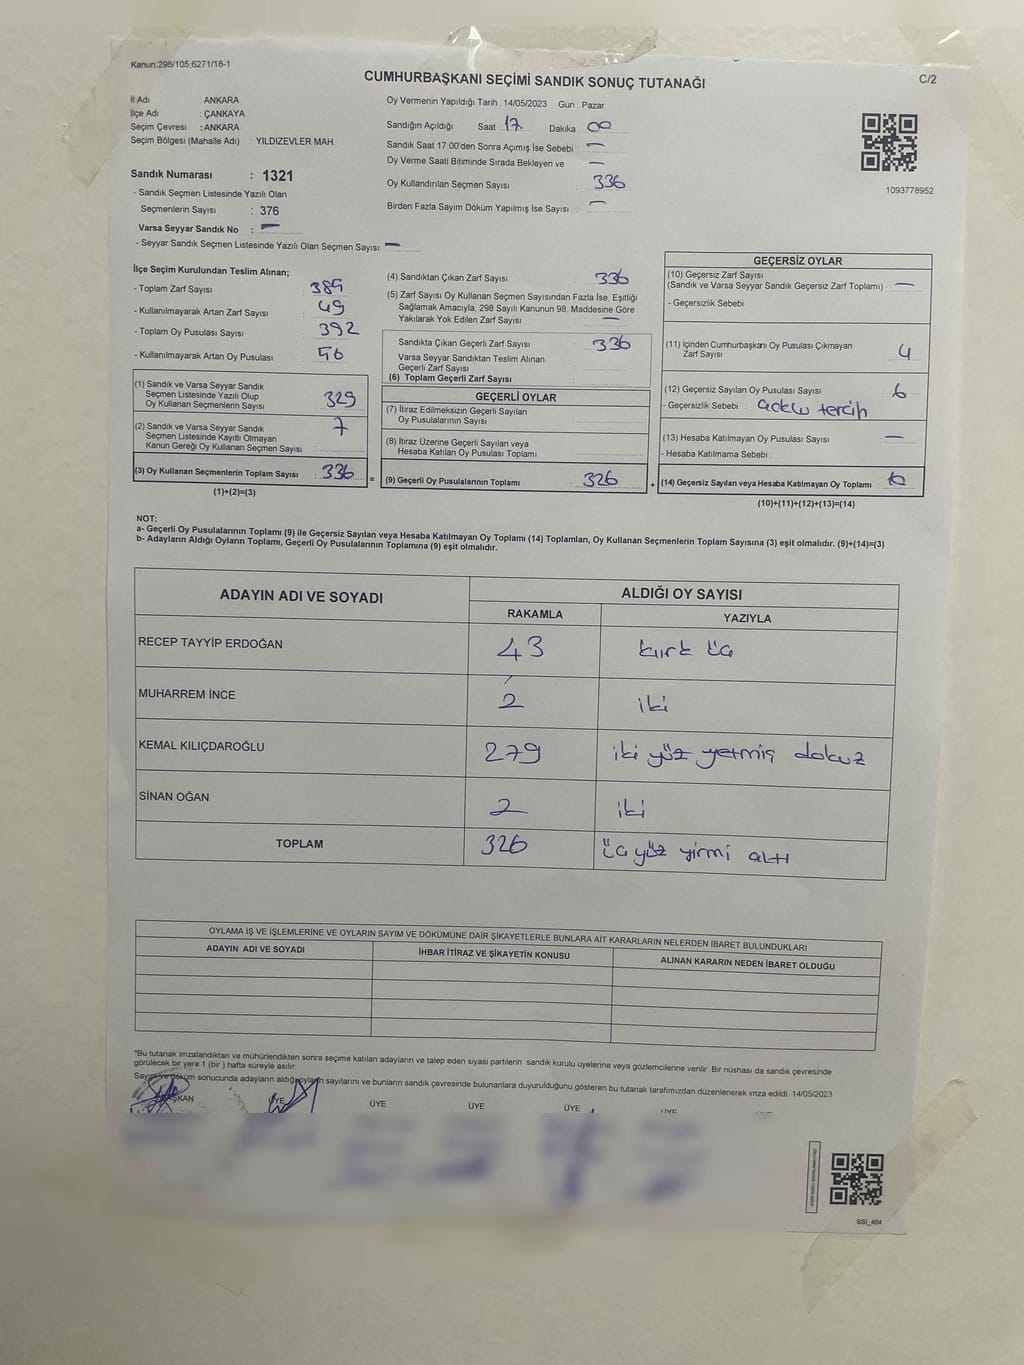 Kanun:298/105,6271/18-1
CUMHURBAŞKANI SEÇİMİ SANDIK SONUÇ TUTANAĞI
C/2
İl Adı : ANKARA
İlçe Adı : ÇANKAYA
Seçim Çevresi : ANKARA
Seçim Bölgesi (Mahalle Adı) : YILDIZEVLER MAH.
Sandık Numarası : 1321
- Sandık Seçmen Listesinde Yazılı Olan
Seçmenlerin Sayısı : 376
Varsa Seyyar Sandık No : —
- Seyyar Sandık Seçmen Listesinde Yazılı Olan Seçmen Sayısı: —
Oy Vermenin Yapıldığı Tarih : 14/05/2023 Gün : Pazar
Sandığın Açıldığı Saat 17. Dakika 00
Sandık Saat 17:00'den Sonra Açımış İse Sebebi : —
Oy Verme Saati Bitiminde Sırada Bekleyen ve —
Oy Kullandırılan Seçmen Sayısı 336
Birden Fazla Sayım Döküm Yapılmış İse Sayısı : —
1093778952
İlçe Seçim Kurulundan Teslim Alınan;
- Toplam Zarf Sayısı 385
- Kullanılmayarak Artan Zarf Sayısı 49
- Toplam Oy Pusulası Sayısı 392
- Kullanılmayarak Artan Oy Pusulası 56
(1) Sandık ve Varsa Seyyar Sandık
Seçmen Listesinde Yazılı Olup
Oy Kullanan Seçmenlerin Sayısı 329
(2) Sandık ve Varsa Seyyar Sandık
Seçmen Listesinde Kayıtlı Olmayan
Kanun Gereği Oy Kullanan Seçmen Sayısı 7
(3) Oy Kullanan Seçmenlerin Toplam Sayısı : 336 =
(1)+(2)=(3)
(4) Sandıktan Çıkan Zarf Sayısı 336
(5) Zarf Sayısı Oy Kullanan Seçmen Sayısından Fazla İse, Eşitliği
Sağlamak Amacıyla, 298 Sayılı Kanunun 98. Maddesine Göre
Yakılarak Yok Edilen Zarf Sayısı —
Sandıkta Çıkan Geçerli Zarf Sayısı : 336
Varsa Seyyar Sandıktan Teslim Alınan
Geçerli Zarf Sayısı
(6) Toplam Geçerli Zarf Sayısı
GEÇERLİ OYLAR
(7) İtiraz Edilmeksizin Geçerli Sayılan
Oy Pusulalarının Sayısı
(8) İtiraz Üzerine Geçerli Sayılan veya
Hesaba Katılan Oy Pusulası Toplamı
(9) Geçerli Oy Pusulalarının Toplamı 326 +
GEÇERSİZ OYLAR
(10) Geçersiz Zarf Sayısı
(Sandık ve Varsa Seyyar Sandık Geçersiz Zarf Toplamı) —
- Geçersizlik Sebebi
(11) İçinden Cumhurbaşkanı Oy Pusulası Çıkmayan
Zarf Sayısı 4
(12) Geçersiz Sayılan Oy Pusulası Sayısı : 6
- Geçersizlik Sebebi : Çoklu tercih
(13) Hesaba Katılmayan Oy Pusulası Sayısı —
- Hesaba Katılmama Sebebi :
(14) Geçersiz Sayılan veya Hesaba Katılmayan Oy Toplamı : 10
(10)+(11)+(12)+(13)=(14)
NOT:
a- Geçerli Oy Pusulalarının Toplamı (9) ile Geçersiz Sayılan veya Hesaba Katılmayan Oy Toplamı (14) Toplamları, Oy Kullanan Seçmenlerin Toplam Sayısına (3) eşit olmalıdır. (9)+(14)=(3)
b- Adayların Aldığı Oyların Toplamı, Geçerli Oy Pusulalarının Toplamına (9) eşit olmalıdır.
ADAYIN ADI VE SOYADI ALDIĞI OY SAYISI
RAKAMLA YAZIYLA
RECEP TAYYİP ERDOĞAN 43 kırk üç
MUHARREM İNCE 2 iki
KEMAL KILIÇDAROĞLU 279 iki yüz yetmiş dokuz
SİNAN OĞAN 2 iki
TOPLAM 326 üç yüz yirmi altı
OYLAMA İŞ VE İŞLEMLERİNE VE OYLARIN SAYIM VE DÖKÜMÜNE DAİR ŞİKAYETLERLE BUNLARA AİT KARARLARIN NELERDEN İBARET BULUNDUKLARI
ADAYIN ADI VE SOYADI İHBAR İTİRAZ VE ŞİKAYETİN KONUSU ALINAN KARARIN NEDEN İBARET OLDUĞU
*Bu tutanak imzalandıktan ve mühürlendikten sonra seçime katılan adayların ve talep eden siyasi partilerin sandık kurulu üyelerine veya gözlemcilerine verilir. Bir nüshası da sandık çevresinde
görülecek bir yere 1 (bir) hafta süreyle asılır.
Sayım ve döküm sonucunda adayların aldığı oyların sayılarını ve bunların sandık çevresinde bulunanlara duyurulduğunu gösteren bu tutanak tarafımızdan düzenlenerek imza edildi. 14/05/2023
BAŞKAN ÜYE ÜYE ÜYE ÜYE ÜYE
SSI_404